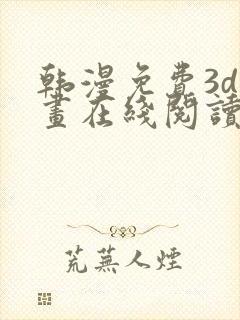 韩漫免费3d
畫在綫閱讀
荒蕪人煙